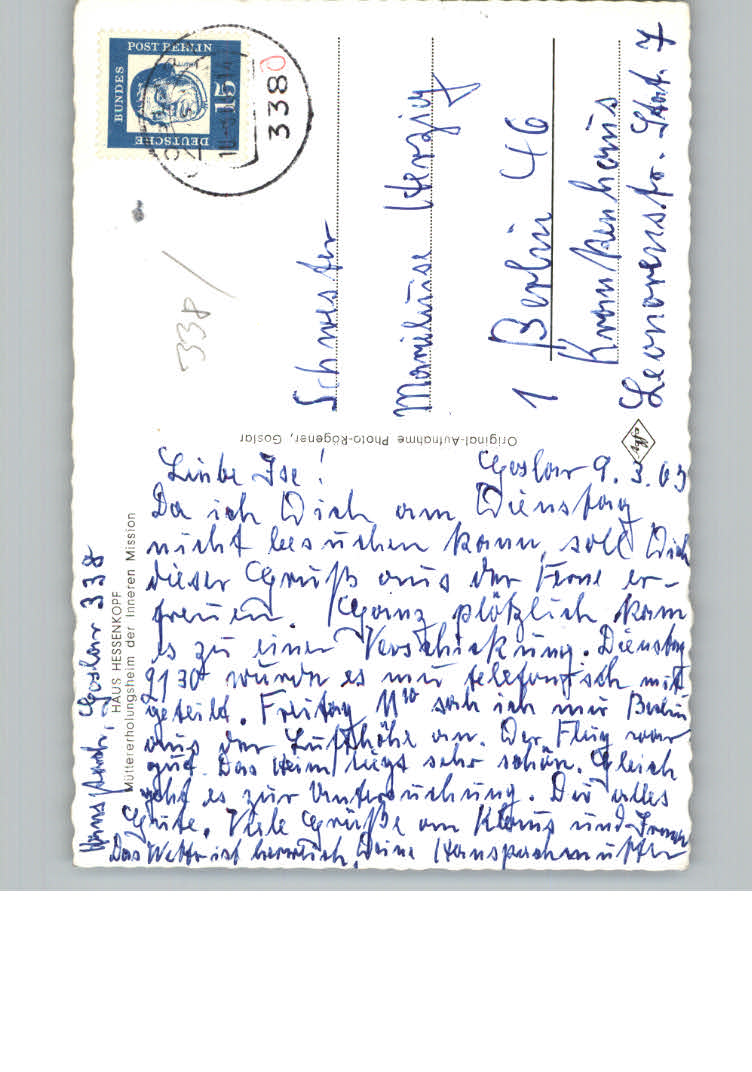 DEUTSCHE
BUNDES
POST BERLIN
15
3380
338/
Schwester
Marieluise Herzig
1 Berlin 46
Krankenhaus
Leonorenstr. Stat. 7
Original-Aufnahme Photo-Rögener, Goslar
Agfa
HAUS HESSENKOPF
Müttererholungsheim der Inneren Mission
Goslar 338
Goslar 9.3.63
Liebe Ise!
Da ich Dich am Dienstag
nicht besuchen kann, soll Dich
dieser Gruß aus der Ferne er-
freuen. Ganz plötzlich kam
es zu einer Verschickung. Dienstag
9130 wurde es mir telefonisch mit
geteild. Freitag 11¹⁰ sah ich mir Berlin
aus der Lufthöhe an. Der Flug war
gut. Das Heim liegt sehr schön. Gleich
geht es zur Untersuchung. Dir alles
Gute. Viele Grüße an Klaus und
Das Wetter ist herrlich, Deine